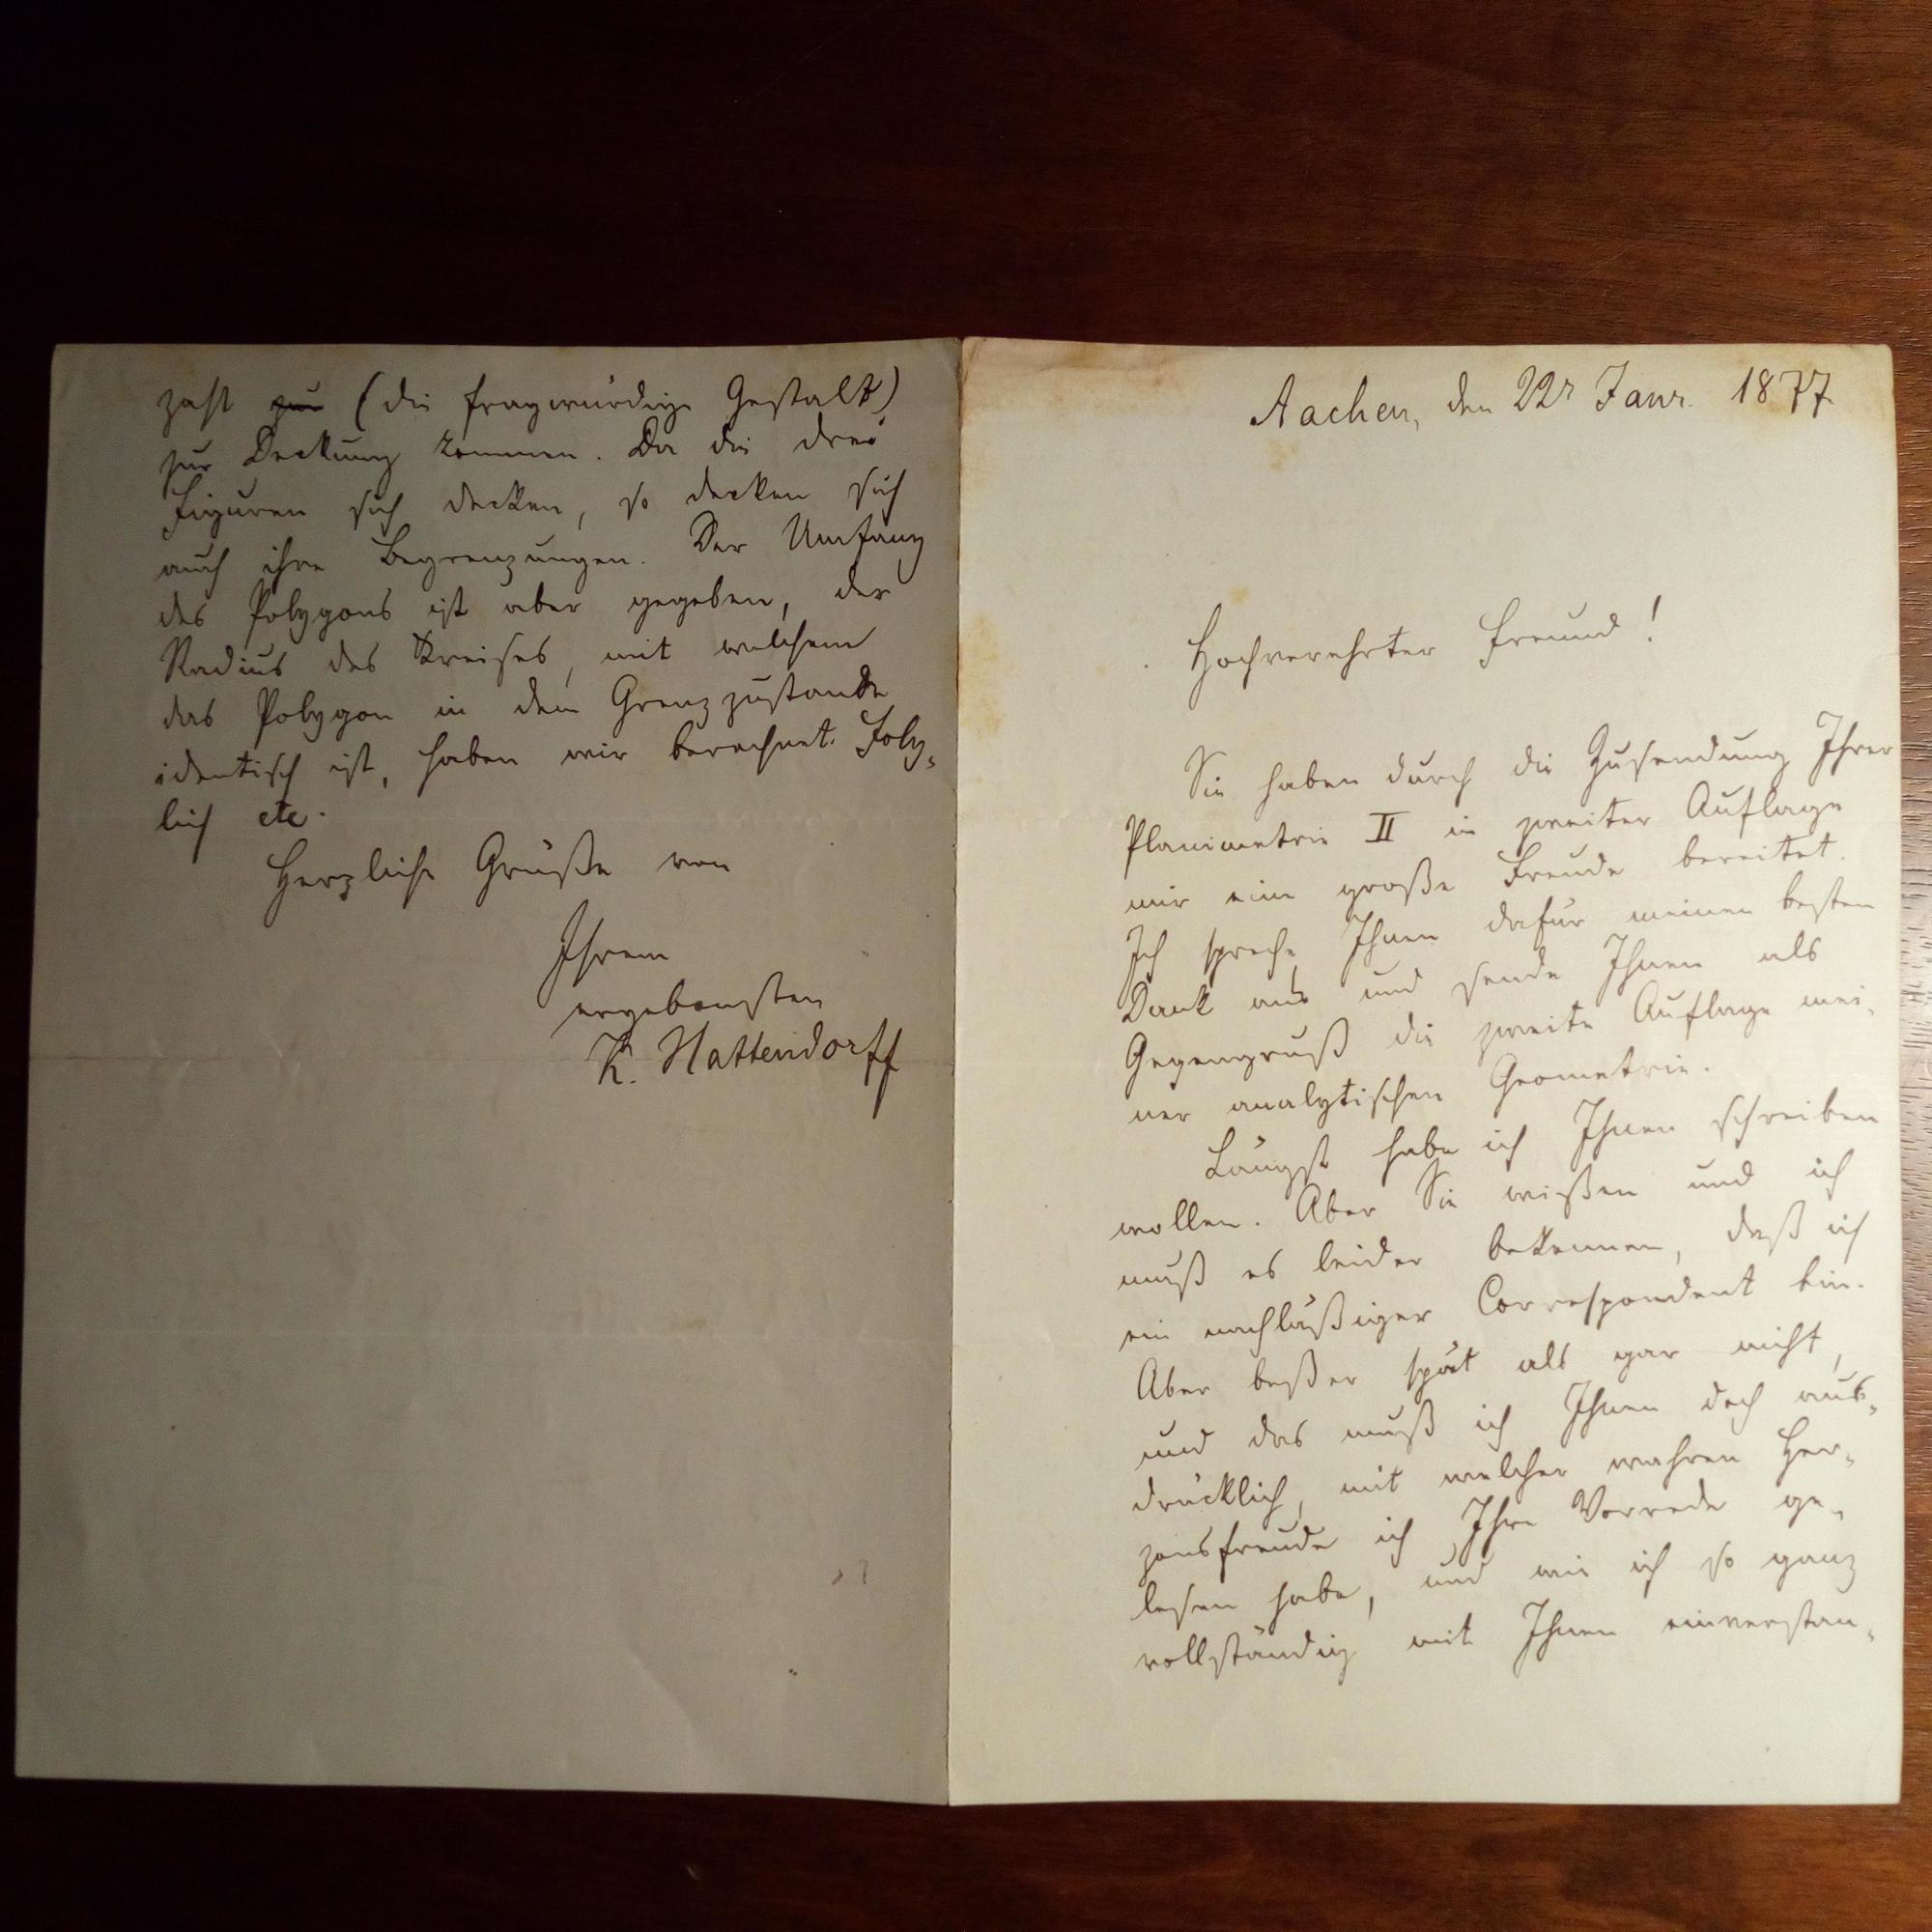 Aachen, den 22r Janr. 1877.
Hochverehrter Freund!
Sie haben durch die Zusendung Ihrer
Planimetrie II in zweiter Auflage
mir eine große Freude bereitet.
Ich spreche Ihnen dafür meinen besten
Dank aus und sende Ihnen als
Gegengruß die zweite Auflage mei-
ner analytischen Geometrie.
Längst habe ich Ihnen schreiben
wollen. Aber Sie wißen und ich
muß es leider bekennen, daß ich
ein nachläßiger Correspondent bin.
Aber beßer spät als gar nicht,
und das muß ich Ihnen doch aus-
drücklich, mit welcher wahren Her-
zensfreude ich Ihre Vorrede ge-
lesen habe, und wie ich so ganz
vollständig mit Ihnen einverstan-
zuft zur (die fragwürdige Gestalt)
zur Deckung kommen. Da die drei
Figuren sich decken, so decken sich
auch ihre Begrenzungen. Der Umfang
des Polygons ist aber gegeben, der
Radius des Kreises, mit welchem
das Polygon in dem Grenzzustande
identisch ist, haben wir berechnet. Folg-
lich etc.
Herzliche Grüße von
Ihrem
ergebensten
K. Hattendorff